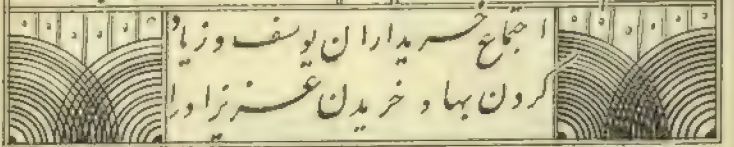 اجتماع خسریداران یوسف و زیاد
کردن بها و خریدن عزیز او را